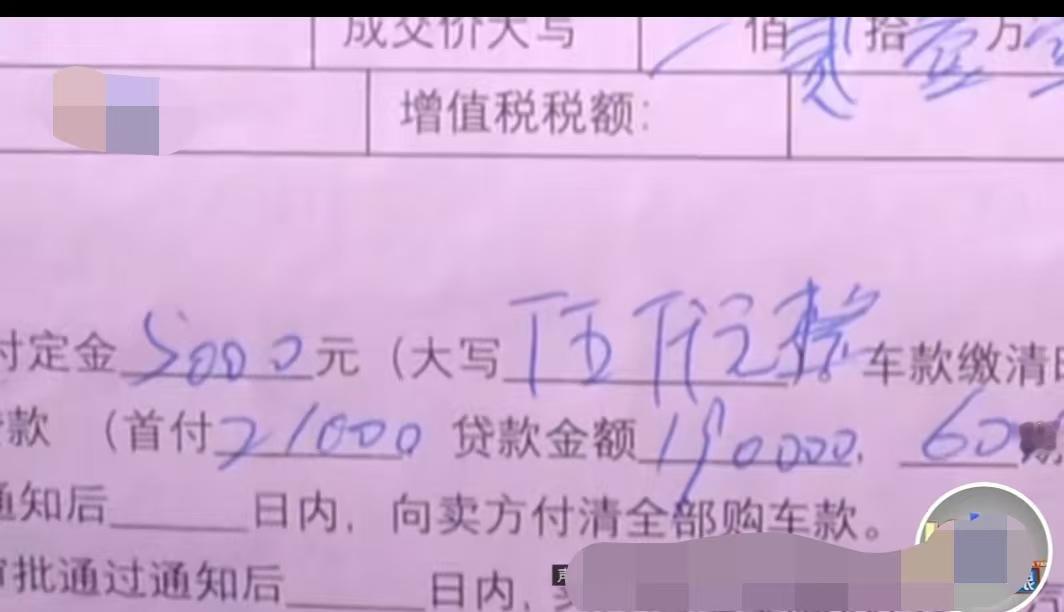 成交价大写 佰贰拾壹万
增值税税额:
付定金5000元（大写伍仟元整 车款缴清
款（首付21000 贷款金额190000，60期
通知后____日内，向卖方付清全部购车款。
审批通过通知后____日内，